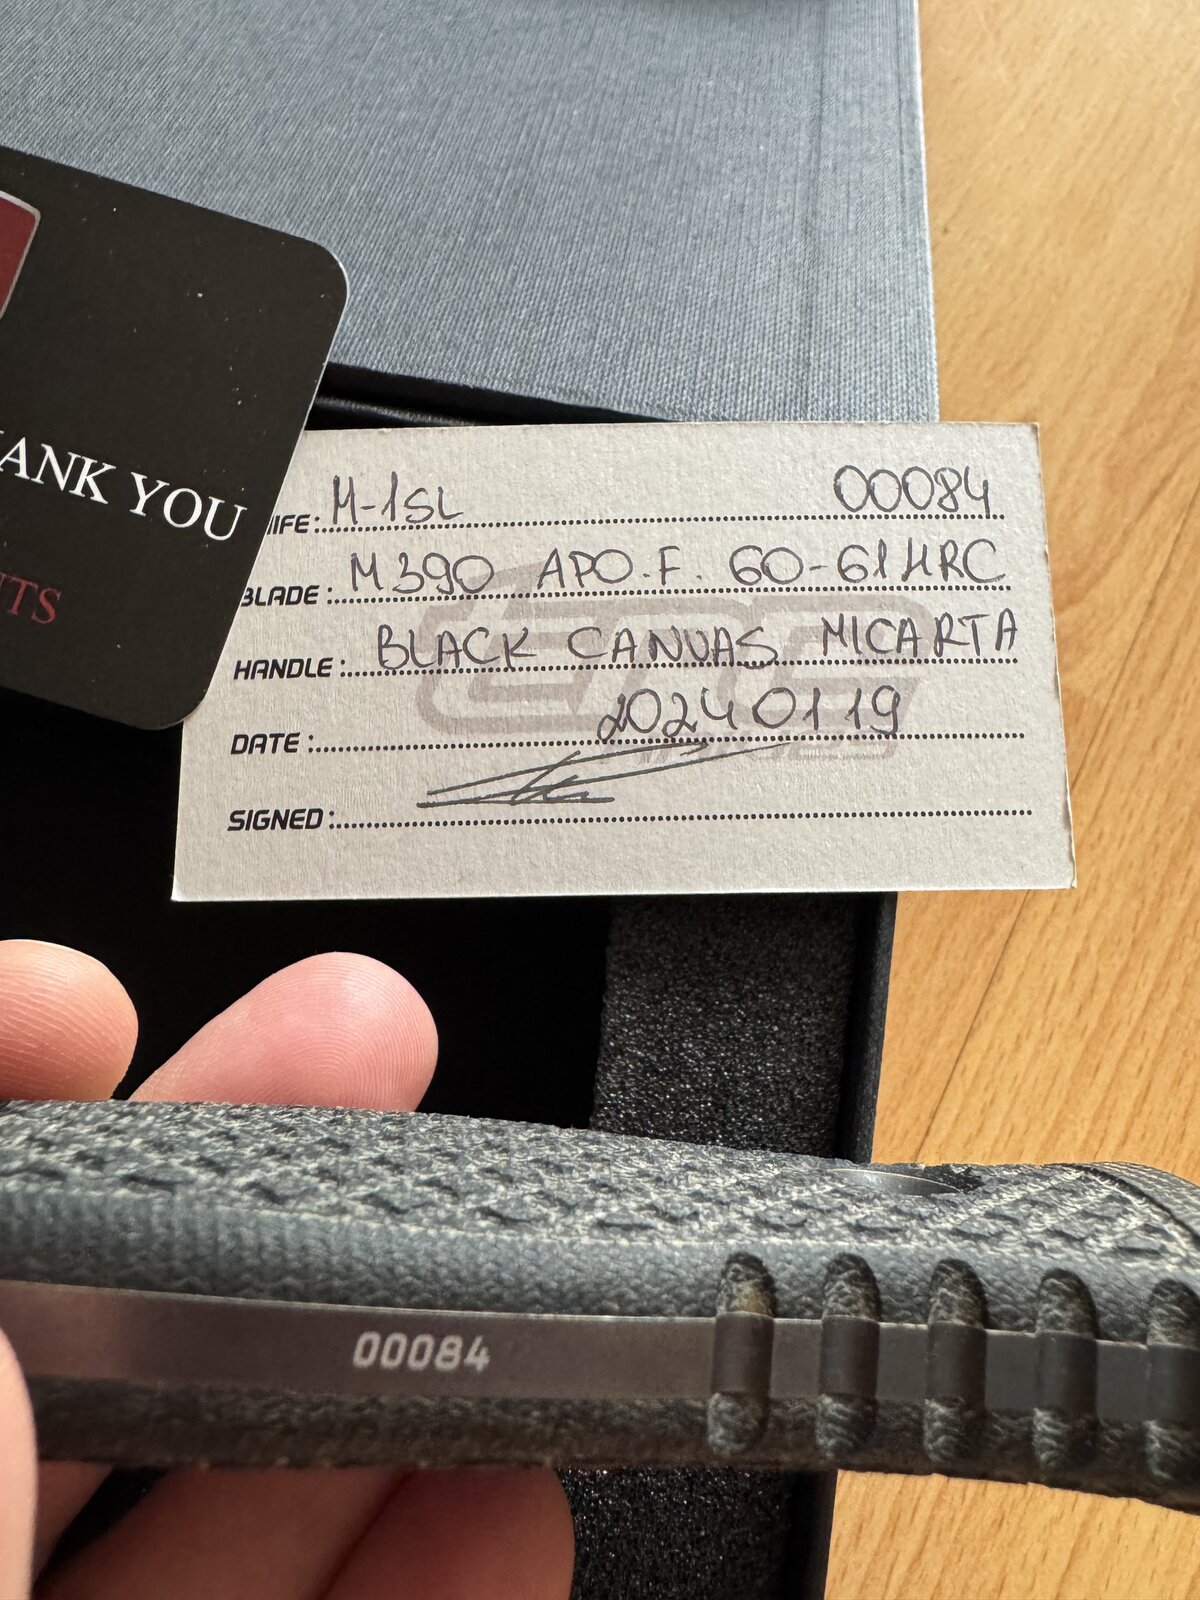 ANK YOU
NTS
NIFE: M-1SL 00084
BLADE: M390 APO.F. 60-61HRC
HANDLE: BLACK CANVAS MICARTA
DATE: 20240119
SIGNED:
00084